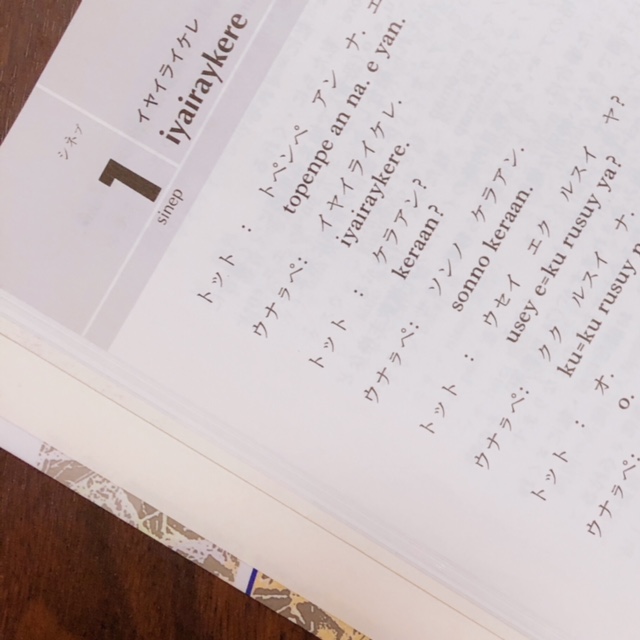 シネㇷ゚
1
sinep
イヤイライケレ
iyairaykere
トット:
トペンペ アン ナ エ
topenpe an na, e yan.
ウナラペ:
イヤイライケレ.
iyairaykere.
トット:
ケラアン?
keraan?
ウナラペ:
ソンノ ケラアン.
sonno keraan.
トット:
ウセイ エク ルスイ ヤ?
usey e=ku rusuy ya?
ウナラペ:
ク ルスイ ナ.
ku=ku rusuy n
トット:
オ
o.
ウナラペ: